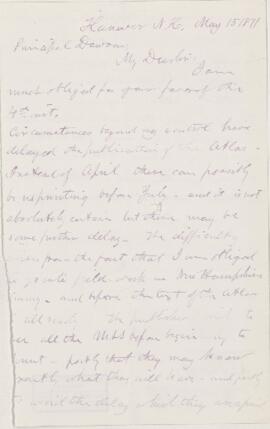 Hanover N.H. May 15 1871
Principal Dawson,
My Dear Sir:
I am
much obliged for your favor of the
4th inst.
Circumstances beyond my control have
delayed the publication of the Atlas.
Instead of April there can possibly
be no printing before July - and it is not
absolutely certain but there may be
some further delay. The difficulty
from the fact that I was obliged
to field work in New Hampshire
- and before the text of the Atlas
all ready. The publisher
all the MSS before beginning to
- partly that they may know
exactly what they will have - and partly
to avoid the delay which they